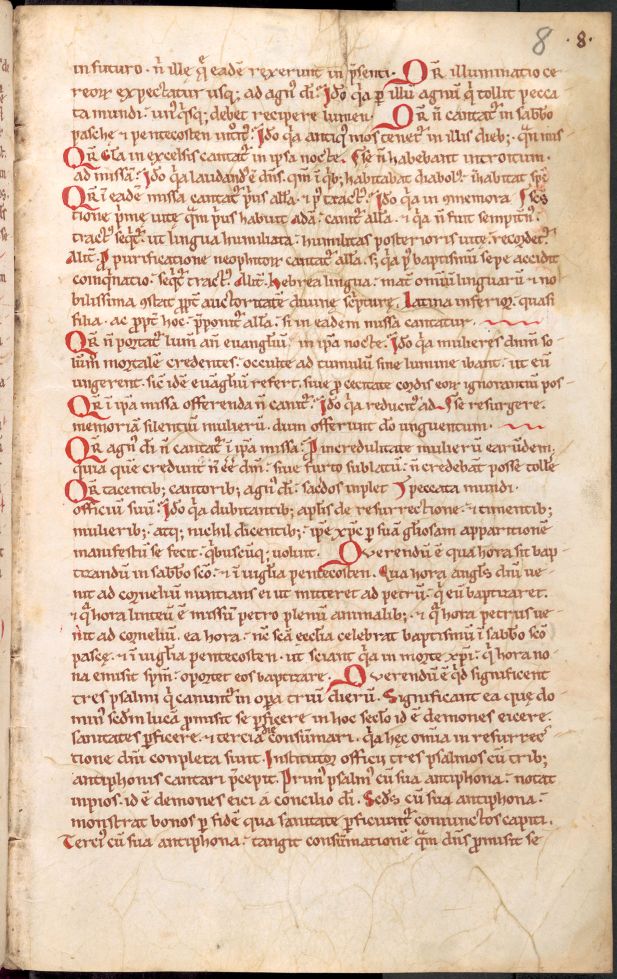 8 ·8·
in futuro · n̄ ille q̄ eadē rexerunt in p̄senti · QR̄ illuminatio ce
reoꝝ expectatur usq; ad agnū dī · Ido q̇a ꝑ illū agnū q̇ tollit pecca
ta mundi · unꝰ q̇sq; debet recipere lumen · QR̄ n̄ cantat᷑ in sabbo
pasche ⁊ pentecosten · Ido q̇a antiqꝰ mos tenet᷑ in illis dieb;
QR̄ gl̄a in excelsis cantat᷑ in ipsa nocte · n̄ habebant introitum ·
ad missā · Ido q̇a laudandꝰ ē dn̄s · qm̄ ī q̇b; habitabat diabolꝰ inhabitat sp̄c
QR̄ ī eadē missa cantat᷑ pͥus all̄a · ⁊ pꝰ tractꝰ · Ido q̇a in memora
tione p̄mę uitę qm̄ pͥus habuit adā · cant᷑ all̄a · ⁊ q̇a n̄ fuit sempitn̄
tractꝰ seq̇t᷑ · ut lingua humiliata · humilitas posterioris uitę recordet᷑ ·
Alit̄ · ꝓ purificatione neophitoꝝ cantat᷑ all̄a · s; q̇a pꝰ baptismū sepe accidit
coinq̇natio · seq̇t᷑ tractꝰ · Alit̄ · hebrea lingua · mat̄ omniū linguarū ⁊ no
bilissima ꝯstat ꝓpt̄ auctoritatē diuinę sc̄pturę · Latina inferior · quasi
filia · ac ꝓpt̄ hoc · p̄ponit᷑ all̄a · si in eadem missa cantatur ·
QR̄ n̄ portat᷑ lum̄ an̄ euangliū · in ipsa nocte · Ido q̇a mulieres dnm̄ so
lūm mortalē credentes · occulte ad tumulū sine lumine ibant · ut eū
ungerent · sic̄ idē euāgliū refert · siue ꝓ cecitate cordis eoꝝ ignorantiū pos
QR̄ ī ipsa missa offerenda n̄ cant᷑ · Ido q̇a reducit᷑ ad se resurgere ·
memoriā silentiū mulierū · dum offerunt dn̄o unguentum ·
QR̄ agnꝰ dī n̄ cantat᷑ ī ipsa missa · ꝓ incredulitate mulierū earūdem ·
quia que credunt n̄ eē dm̄ · siue furto sublatū · n̄ credebat posse tolle
QR̄ tacentib; cantorib; agnꝰ dī · sacdos inplet peccata mundi ·
officiū suū · Ido q̇a dubitantib; aplis de resurrectione · ⁊ timentib;
mulierib; · atq; nichil dicentib; · ip̄e xp̄c ꝑ suā gl̄iosam apparitionē
manifestū se fecit · q̇buscūq; uoluit · Querendū ē qua hora sit bap
tizandū in sabbo sc̄o · ⁊ ī uigilia pentecosten · Qua hora anglꝰ dn̄i ue
nit ad corneliū nuntians ei ut mitteret ad petrū · q̇ eū baptizaret ·
⁊ q̇ hora linteū ē missū petro plenū animalib; · ⁊ q̇ hora petrus ue
nit ad corneliū · ea hora · nc̄ sc̄a ęcclia celebrat baptismū ī sabbo sc̄o
pascę · ⁊ ī uigilia pentecosten · ut sciant q̇a in morte xp̄i · q̇ hora no
na emisit spm̄ · oportet eos baptizare · Querendū ē q̇d significent
tres psalmi q̇ canunt᷑ in opa triū dierū · Significant ea quę do
minꝰ sc̄dm lucā ꝓmisit se ꝑficere in hoc sęclo id ē demones eicere ·
sanitates ꝑficere · ⁊ tercia die consūmari · q̇a hęc om̄ia in resurrec
tione dn̄i conpleta sunt · Institutor officii tres psalmos cū trib;
antiphonis cantari p̄cepit · Primꝰ psalmꝰ cū sua antiphona · notat
inpios · id ē demones eici a concilio dī · Sc̄ds cū sua antiphona ·
monstrat bonos ꝑ fidē qua sanitate ꝑficiunt᷑ coniunctos capiti ·
Terciꝰ cū sua antiphona · tangit consūmationē qm̄ dn̄s ꝓmisit se